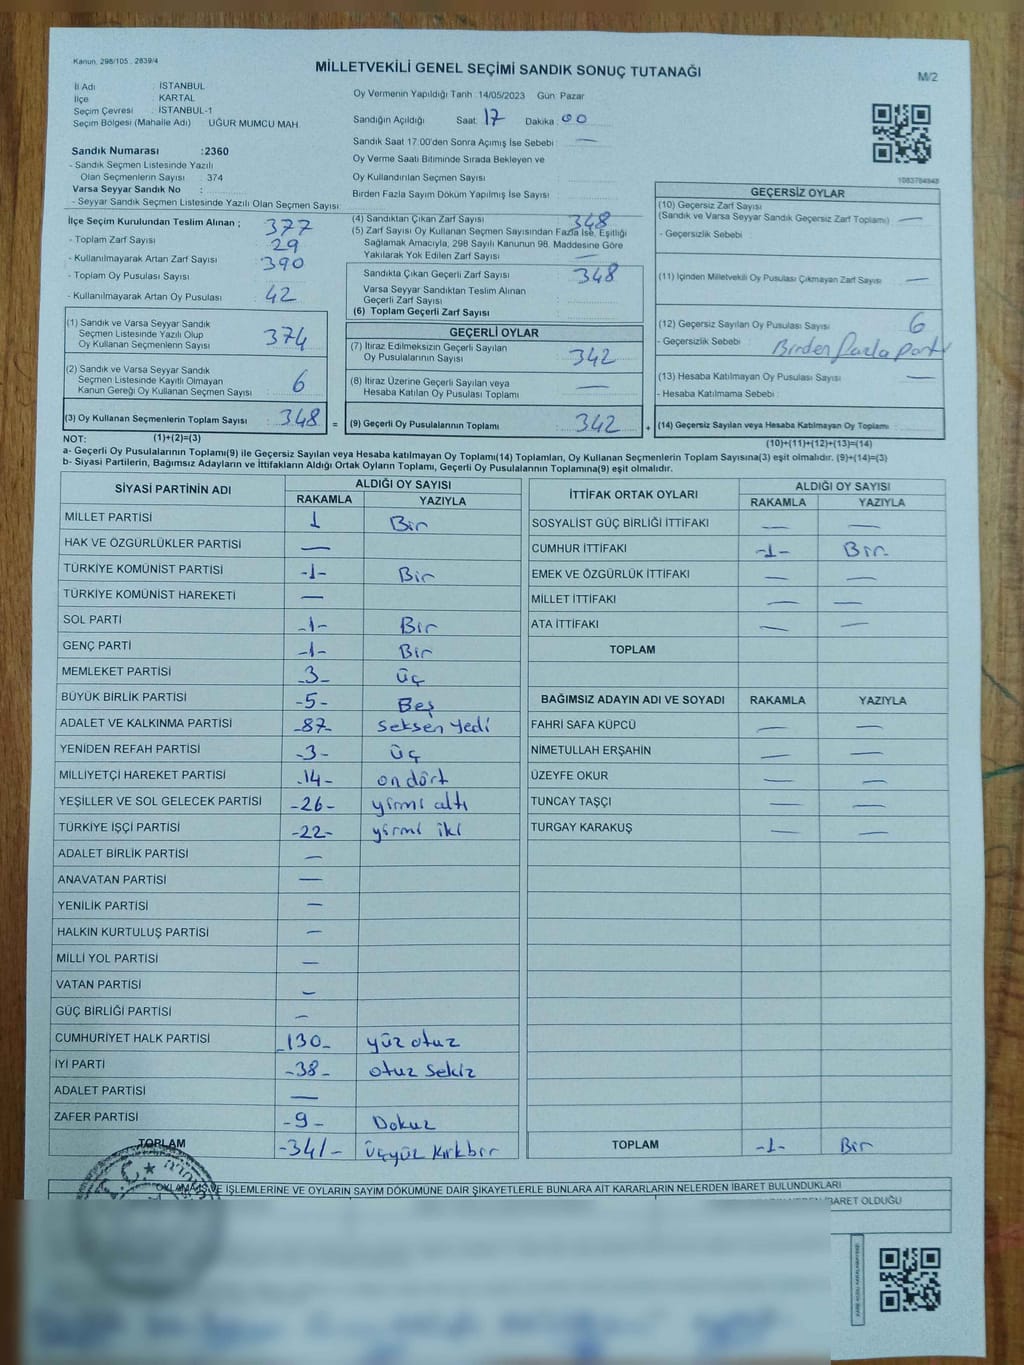 Kanun, 298/105 , 2839/4
MİLLETVEKİLİ GENEL SEÇİMİ SANDIK SONUÇ TUTANAĞI
M/2
İl Adı : İSTANBUL
İlçe : KARTAL
Seçim Çevresi : İSTANBUL-1
Seçim Bölgesi (Mahalle Adı) : UĞUR MUMCU MAH.
Oy Vermenin Yapıldığı Tarih :14/05/2023 Gün: Pazar
Sandığın Açıldığı Saat: 17 Dakika: 00
Sandık Saat 17:00'den Sonra Açımış İse Sebebi : —
Oy Verme Saati Bitiminde Sırada Bekleyen ve
Oy Kullandırılan Seçmen Sayısı :
Birden Fazla Sayım Döküm Yapılmış İse Sayısı :
Sandık Numarası :2360
- Sandık Seçmen Listesinde Yazılı
Olan Seçmen Sayısı : 374
Varsa Seyyar Sandık No :
- Seyyar Sandık Seçmen Listesinde Yazılı Olan Seçmen Sayısı:
İlçe Seçim Kurulundan Teslim Alınan ; 377
- Toplam Zarf Sayısı 29
- Kullanılmayarak Artan Zarf Sayısı 390
- Toplam Oy Pusulası Sayısı
- Kullanılmayarak Artan Oy Pusulası 42
(1) Sandık ve Varsa Seyyar Sandık
Seçmen Listesinde Yazılı Olup
Oy Kullanan Seçmenlerin Sayısı 374
(2) Sandık ve Varsa Seyyar Sandık
Seçmen Listesinde Kayıtlı Olmayan
Kanun Gereği Oy Kullanan Seçmen Sayısı 6
(3) Oy Kullanan Seçmenlerin Toplam Sayısı 348 =
(4) Sandıktan Çıkan Zarf Sayısı 348
(5) Zarf Sayısı Oy Kullanan Seçmen Sayısından Fazla İse, Eşitliği
Sağlamak Amacıyla, 298 Sayılı Kanunun 98. Maddesine Göre
Yakılarak Yok Edilen Zarf Sayısı —
Sandıkta Çıkan Geçerli Zarf Sayısı 348
Varsa Seyyar Sandıktan Teslim Alınan
Geçerli Zarf Sayısı
(6) Toplam Geçerli Zarf Sayısı
GEÇERLİ OYLAR
(7) İtiraz Edilmeksizin Geçerli Sayılan
Oy Pusulalarının Sayısı 342
(8) İtiraz Üzerine Geçerli Sayılan veya
Hesaba Katılan Oy Pusulası Toplamı —
(9) Geçerli Oy Pusulalarının Toplamı 342 +
1083784848
GEÇERSİZ OYLAR
(10) Geçersiz Zarf Sayısı
(Sandık ve Varsa Seyyar Sandık Geçersiz Zarf Toplamı) —
- Geçersizlik Sebebi :
(11) İçinden Milletvekili Oy Pusulası Çıkmayan Zarf Sayısı —
(12) Geçersiz Sayılan Oy Pusulası Sayısı 6
- Geçersizlik Sebebi : Birden fazla parti
(13) Hesaba Katılmayan Oy Pusulası Sayısı —
- Hesaba Katılmama Sebebi :
(14) Geçersiz Sayılan veya Hesaba Katılmayan Oy Toplamı :
NOT: (1)+(2)=(3)
(10)+(11)+(12)+(13)=(14)
a- Geçerli Oy Pusulalarının Toplamı(9) ile Geçersiz Sayılan veya Hesaba katılmayan Oy Toplamı(14) Toplamları, Oy Kullanan Seçmenlerin Toplam Sayısına(3) eşit olmalıdır. (9)+(14)=(3)
b- Siyasi Partilerin, Bağımsız Adayların ve İttifakların Aldığı Ortak Oyların Toplamı, Geçerli Oy Pusulalarının Toplamına(9) eşit olmalıdır.
SİYASİ PARTİNİN ADI ALDIĞI OY SAYISI
RAKAMLA YAZIYLA
MİLLET PARTİSİ 1 Bir
HAK VE ÖZGÜRLÜKLER PARTİSİ —
TÜRKİYE KOMÜNİST PARTİSİ -1- Bir
TÜRKİYE KOMÜNİST HAREKETİ —
SOL PARTİ -1- Bir
GENÇ PARTİ -1- Bir
MEMLEKET PARTİSİ -3- üç
BÜYÜK BİRLİK PARTİSİ -5- Beş
ADALET VE KALKINMA PARTİSİ -87- Seksen yedi
YENİDEN REFAH PARTİSİ -3- üç
MİLLİYETÇİ HAREKET PARTİSİ -14- on dört
YEŞİLLER VE SOL GELECEK PARTİSİ -26- yirmi altı
TÜRKİYE İŞÇİ PARTİSİ -22- yirmi iki
ADALET BİRLİK PARTİSİ —
ANAVATAN PARTİSİ —
YENİLİK PARTİSİ —
HALKIN KURTULUŞ PARTİSİ —
MİLLİ YOL PARTİSİ —
VATAN PARTİSİ —
GÜÇ BİRLİĞİ PARTİSİ —
CUMHURİYET HALK PARTİSİ -130- yüz otuz
İYİ PARTİ -38- otuz sekiz
ADALET PARTİSİ —
ZAFER PARTİSİ -9- Dokuz
TOPLAM -341- üçyüz kırkbir
İTTİFAK ORTAK OYLARI ALDIĞI OY SAYISI
RAKAMLA YAZIYLA
SOSYALİST GÜÇ BİRLİĞİ İTTİFAKI — —
CUMHUR İTTİFAKI -1- Bir
EMEK VE ÖZGÜRLÜK İTTİFAKI — —
MİLLET İTTİFAKI — —
ATA İTTİFAKI — —
TOPLAM
BAĞIMSIZ ADAYIN ADI VE SOYADI RAKAMLA YAZIYLA
FAHRİ SAFA KÜPCÜ — —
NİMETULLAH ERŞAHİN — —
ÜZEYFE OKUR — —
TUNCAY TAŞÇI — —
TURGAY KARAKUŞ — —
TOPLAM -1- Bir
İŞLEMLERİNE VE OYLARIN SAYIM DÖKÜMÜNE DAİR ŞİKAYETLERLE BUNLARA AİT KARARLARIN NELERDEN İBARET BULUNDUKLARI
İBARET OLDUĞU